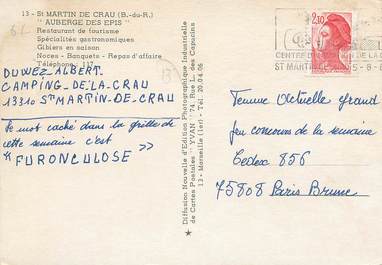 13 - St MARTIN DE CRAU (B.-du-R.)
"AUBERGE DES EPIS"
Restaurant de tourisme
Spécialités gastronomiques
Gibiers en saison
Noces - Banquets - Repas d'affaire
Téléphone : 117
DUWEZ ALBERT
CAMPING-DE-LA-CRAU
13310 St MARTIN-DE-CRAU
Le mot caché dans la grille de
cette semaine c'est
" FURONCULOSE >>
Diffusion Nouvelle d'Edition Photographique Industrielle
de Cartes Postales "YVAN" 74, Rue des Capucins
13 - Marseille (1er) - Tél. 20.04.06
2,10
CENTRE DE LA
ST MARTIN
Femme Actuelle grand
jeu concours de la semaine
Cedex 856
75808 Paris Brune